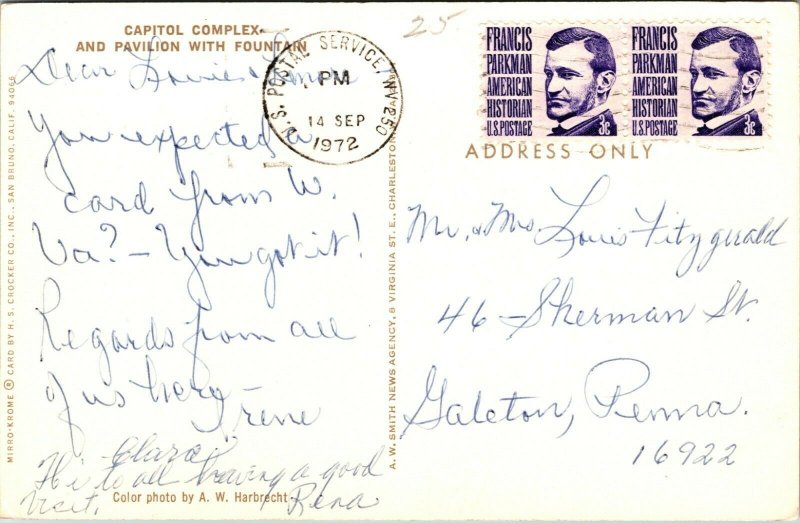 CAPITOL COMPLEX
AND PAVILION WITH FOUNTAIN
Dear Louis &
You expected a
card from W.
Va? – You got it!
Regards from all
of us here –
Irene
Clara,
Hi to all having a good
visit. Rena
Color photo by A. W. Harbrecht
MIRRO-KROME ® CARD BY H. S. CROCKER CO., INC., SAN BRUNO, CALIF. 94066
A. W. SMITH NEWS AGENCY, 8 VIRGINIA ST. E., CHARLESTON
25
U.S. POSTAL SERVICE, WV 250
PM
14 SEP
1972
FRANCIS
PARKMAN
AMERICAN
HISTORIAN
U.S. POSTAGE 3c
FRANCIS
PARKMAN
AMERICAN
HISTORIAN
U.S. POSTAGE 3c
ADDRESS ONLY
Mr. & Mrs. Louis Fitzgerald
46 – Sherman St.
Galeton, Penna.
16922